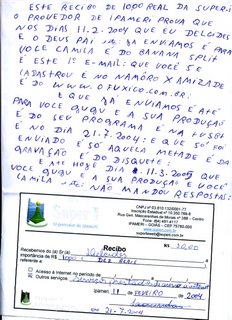 ESTE RECIBO DE 10,00 REAL DA SUPERI
O PROVEDOR DE IPAMERI PROVA QUE
NOS DIAS 11.2.2004 QUE EU DELCIDES
E O DEUS PAI ENVIAMOS E PARA
VOCE CAMILA E DO BANANA SPLIT
E ESTE 1º E-MAIL: QUE VOCÊ SE
CADASTROU E NO NAMÔRO X AMIZADE
E DO WWW.OFUXICO.COM.BR.
E QUE JA ENVIAMOS E ATÉ
PARA VOCE GUGU E A SUA PRODUÇÃO
E DO SEU PROGRAMA E NA TV SBT
E NO DIA 21.7.2004: E QUE SÓ FOI
ENVIADO E SÓ AQUELA METADE E DA
GRAVAÇÃO E DO DISQUETE:
E ATE HOJE DIA 11.3.2009 QUE
VOCE GUGU E A SUA PRODUÇÃO E VOCÊ
CAMILA NÃO MANDOU RESPOSTAS:
CNPJ nº 03.810.132/0001-72
Inscrição Estadual nº 10.350.789-8
Rua Gen. Mascarenhas de Moraes nº 388 - Centro
Fone: (64) 491-4117
IPAMERI - GOIÁS - CEP 75780-000
Super i
Recibo
R$ 10,00
Recebemos do (a) Sr (a) Delcides
importância de R$ 10,00 DEZ REAIS
Acesso à internet no período de
Outros serviços
Ipameri, 11 de FEVEREIRO de 2004
21-7-2004